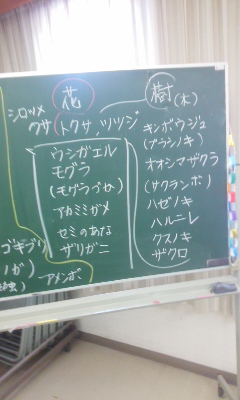 花
樹(木)
シロツメ
クサ(トクサ,ツツジ
キンポウジュ
(ブラシノキ)
オオシマザクラ
(サクランボ)
ハゼノキ
ハルニレ
クスノキ
ザクロ
ウシガエル
モグラ
(モグラづか)
アカミミガメ
セミのあな
ザリガニ
アメンボ
ゴキブリ